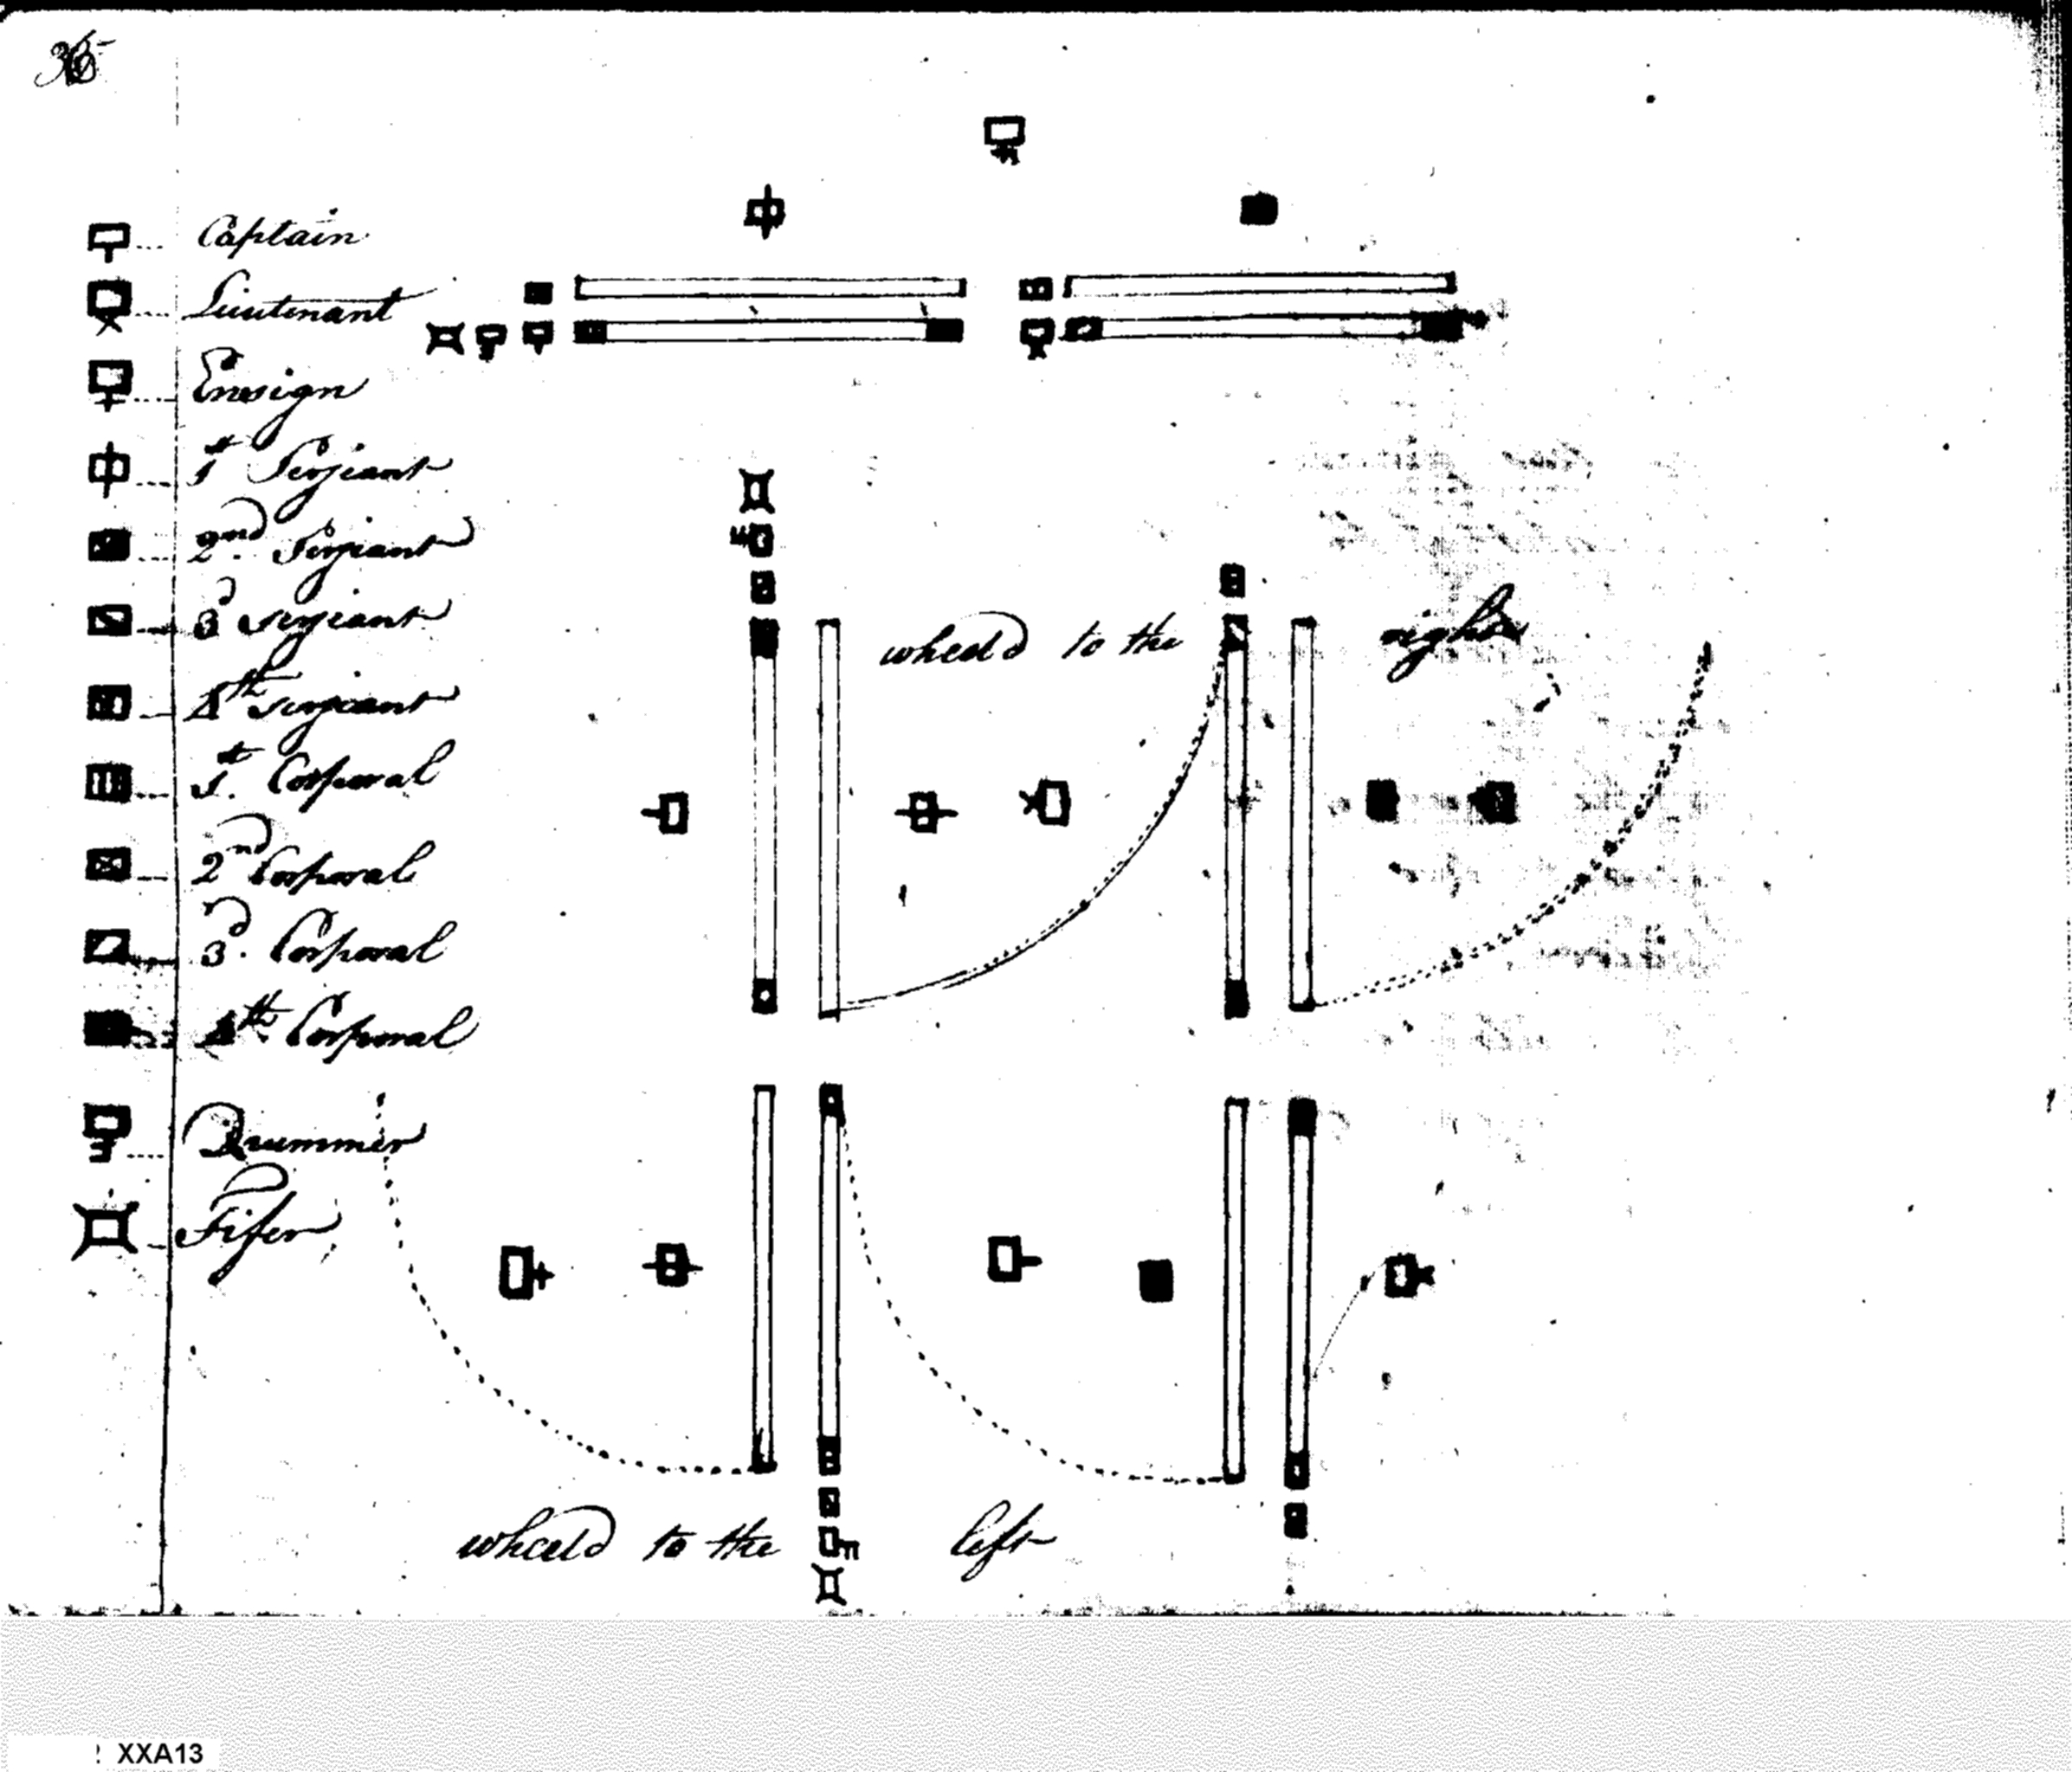 Captain
Lieutenant
Ensign
1st Serjeant
2nd Serjeant
3d Serjeant
wheeld to the right
4th Serjeant
1st Corporal
2nd Corporal
3d Corporal
4th Corporal
Drummer
Fifer
wheeld to the left
XXA13